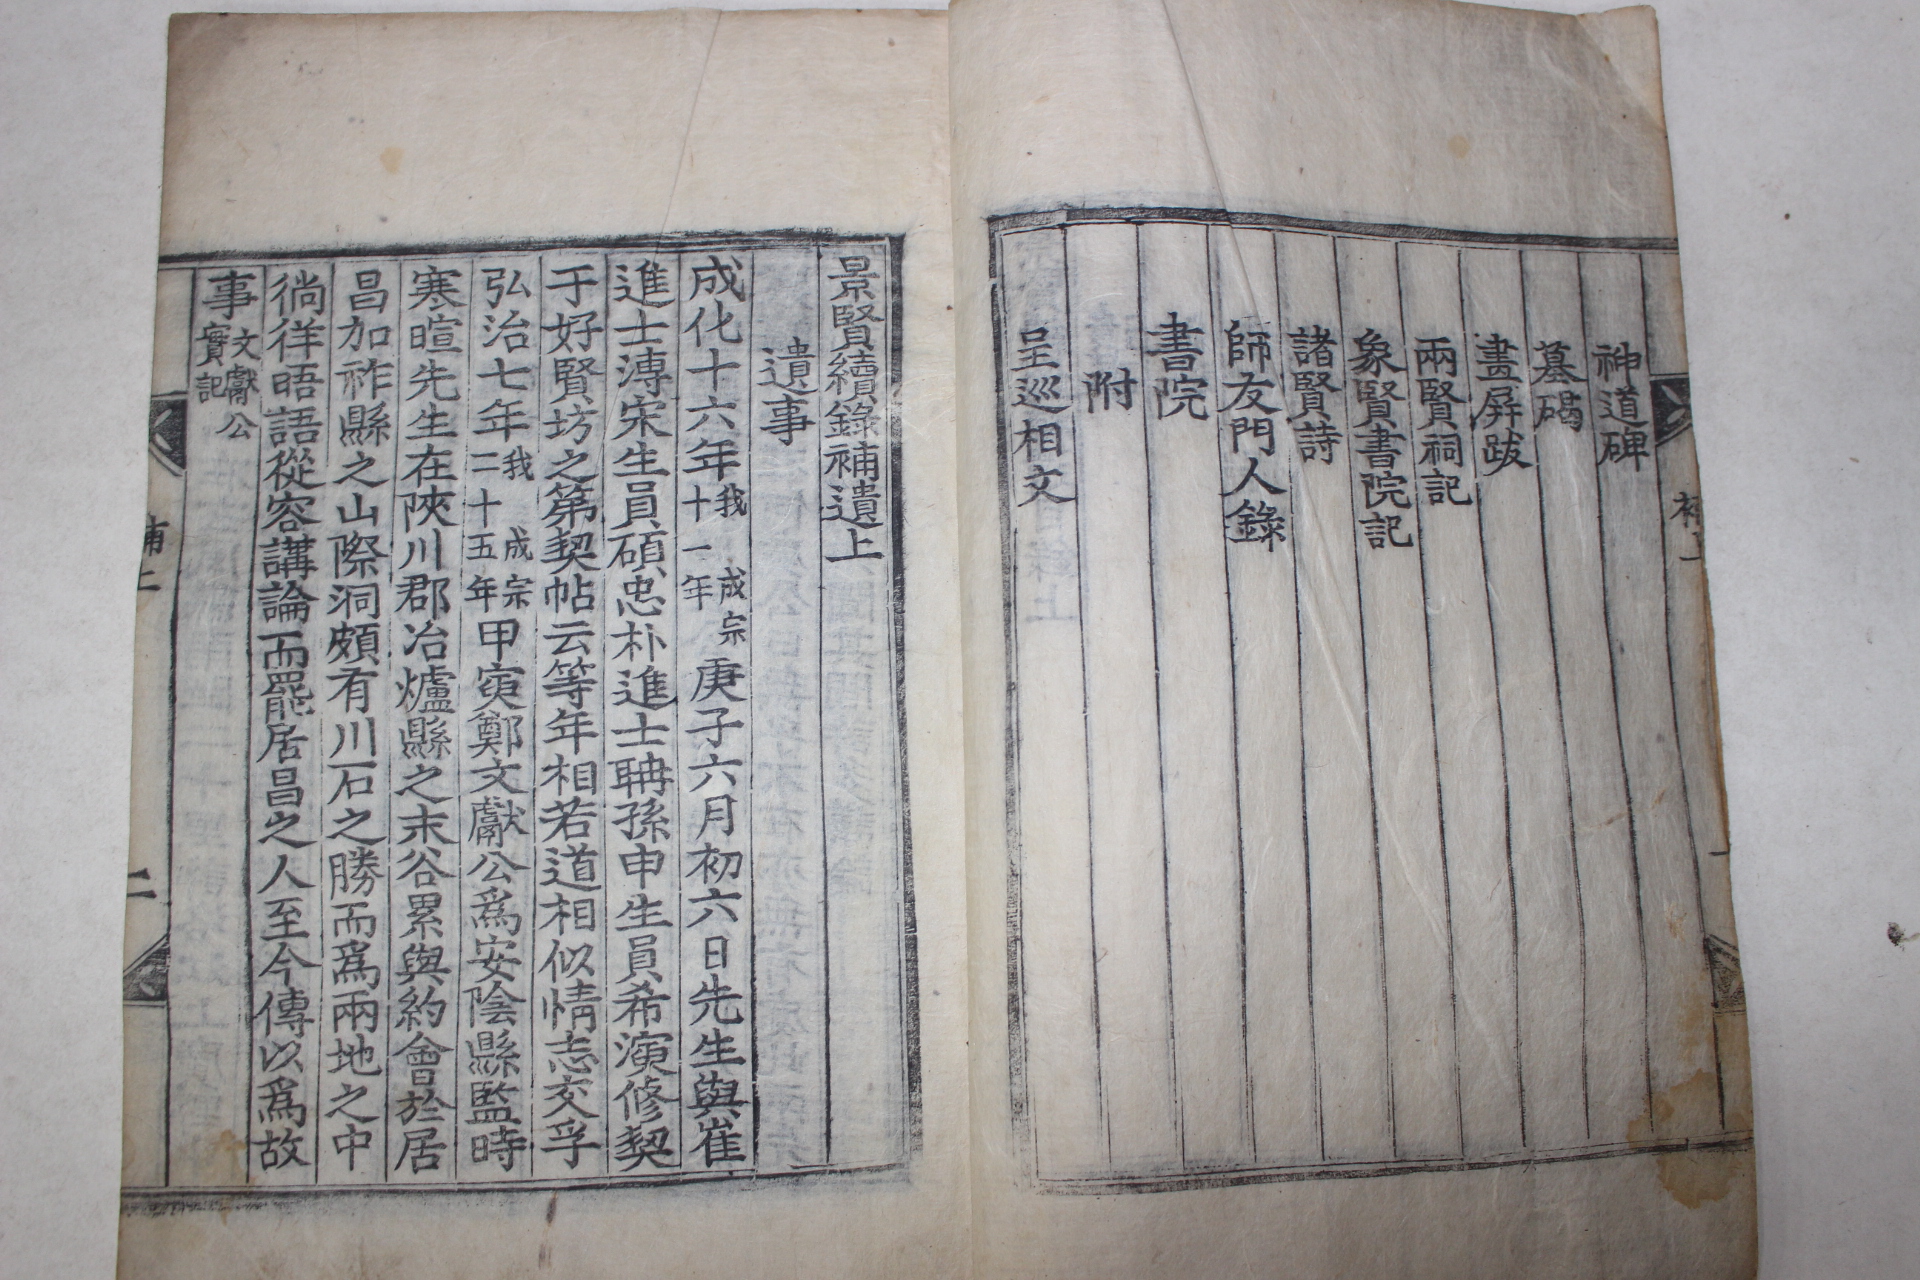 神道碑
墓碣
畫屏跋
兩賢祠記
象賢書院記
諸賢詩
師友門人錄
書院
附
呈巡相文
景賢續錄補遺上
遺事
成化十六年我成宗十一年庚子六月初六日先生與崔
進士溥宋生員碩忠朴進士聃孫申生員希演修契
于好賢坊之第契帖云等年相若道相似情志交孚
弘治七年我成宗二十五年甲寅鄭文獻公爲安陰縣監時
寒暄先生在陜川郡冶爐縣之末谷累與約會於居
昌加祚縣之山際洞頗有川石之勝而爲兩地之中
徜徉晤語從容講論而罷居昌之人至今傳以爲故
事文獻公實記
補上
二